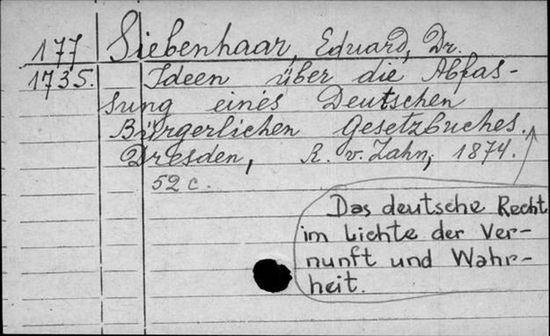 177 Siebenhaar, Eduard, Dr.
1735. Ideen über die Abfas-
sung eines Deutschen
Bürgerlichen Gesetzbuches.
Dresden, R. v. Zahn, 1874.
52 c.
Das deutsche Recht
im Lichte der Ver-
nunft und Wahr-
heit.